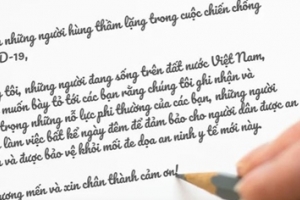 những người hùng thầm lặng trong cuộc chiến chống
D-19,
tôi, những người đang sống trên đất nước Việt Nam,
muốn bày tỏ tới các bạn rằng chúng tôi ghi nhận và
trọng những nỗ lực phi thường của các bạn, những người
làm việc bất kể ngày đêm để đảm bảo cho người dân được an
và được bảo vệ khỏi mối đe dọa an ninh y tế mới này.
mến và xin chân thành cảm ơn!